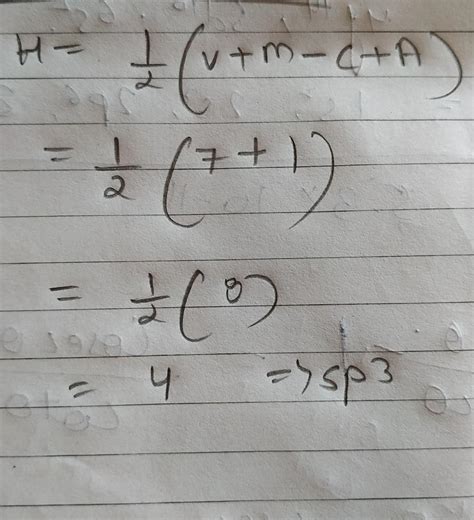 H = 1/2 (V+M-C+A)
= 1/2 (7+1)
= 1/2 (8)
= 4 => sp3